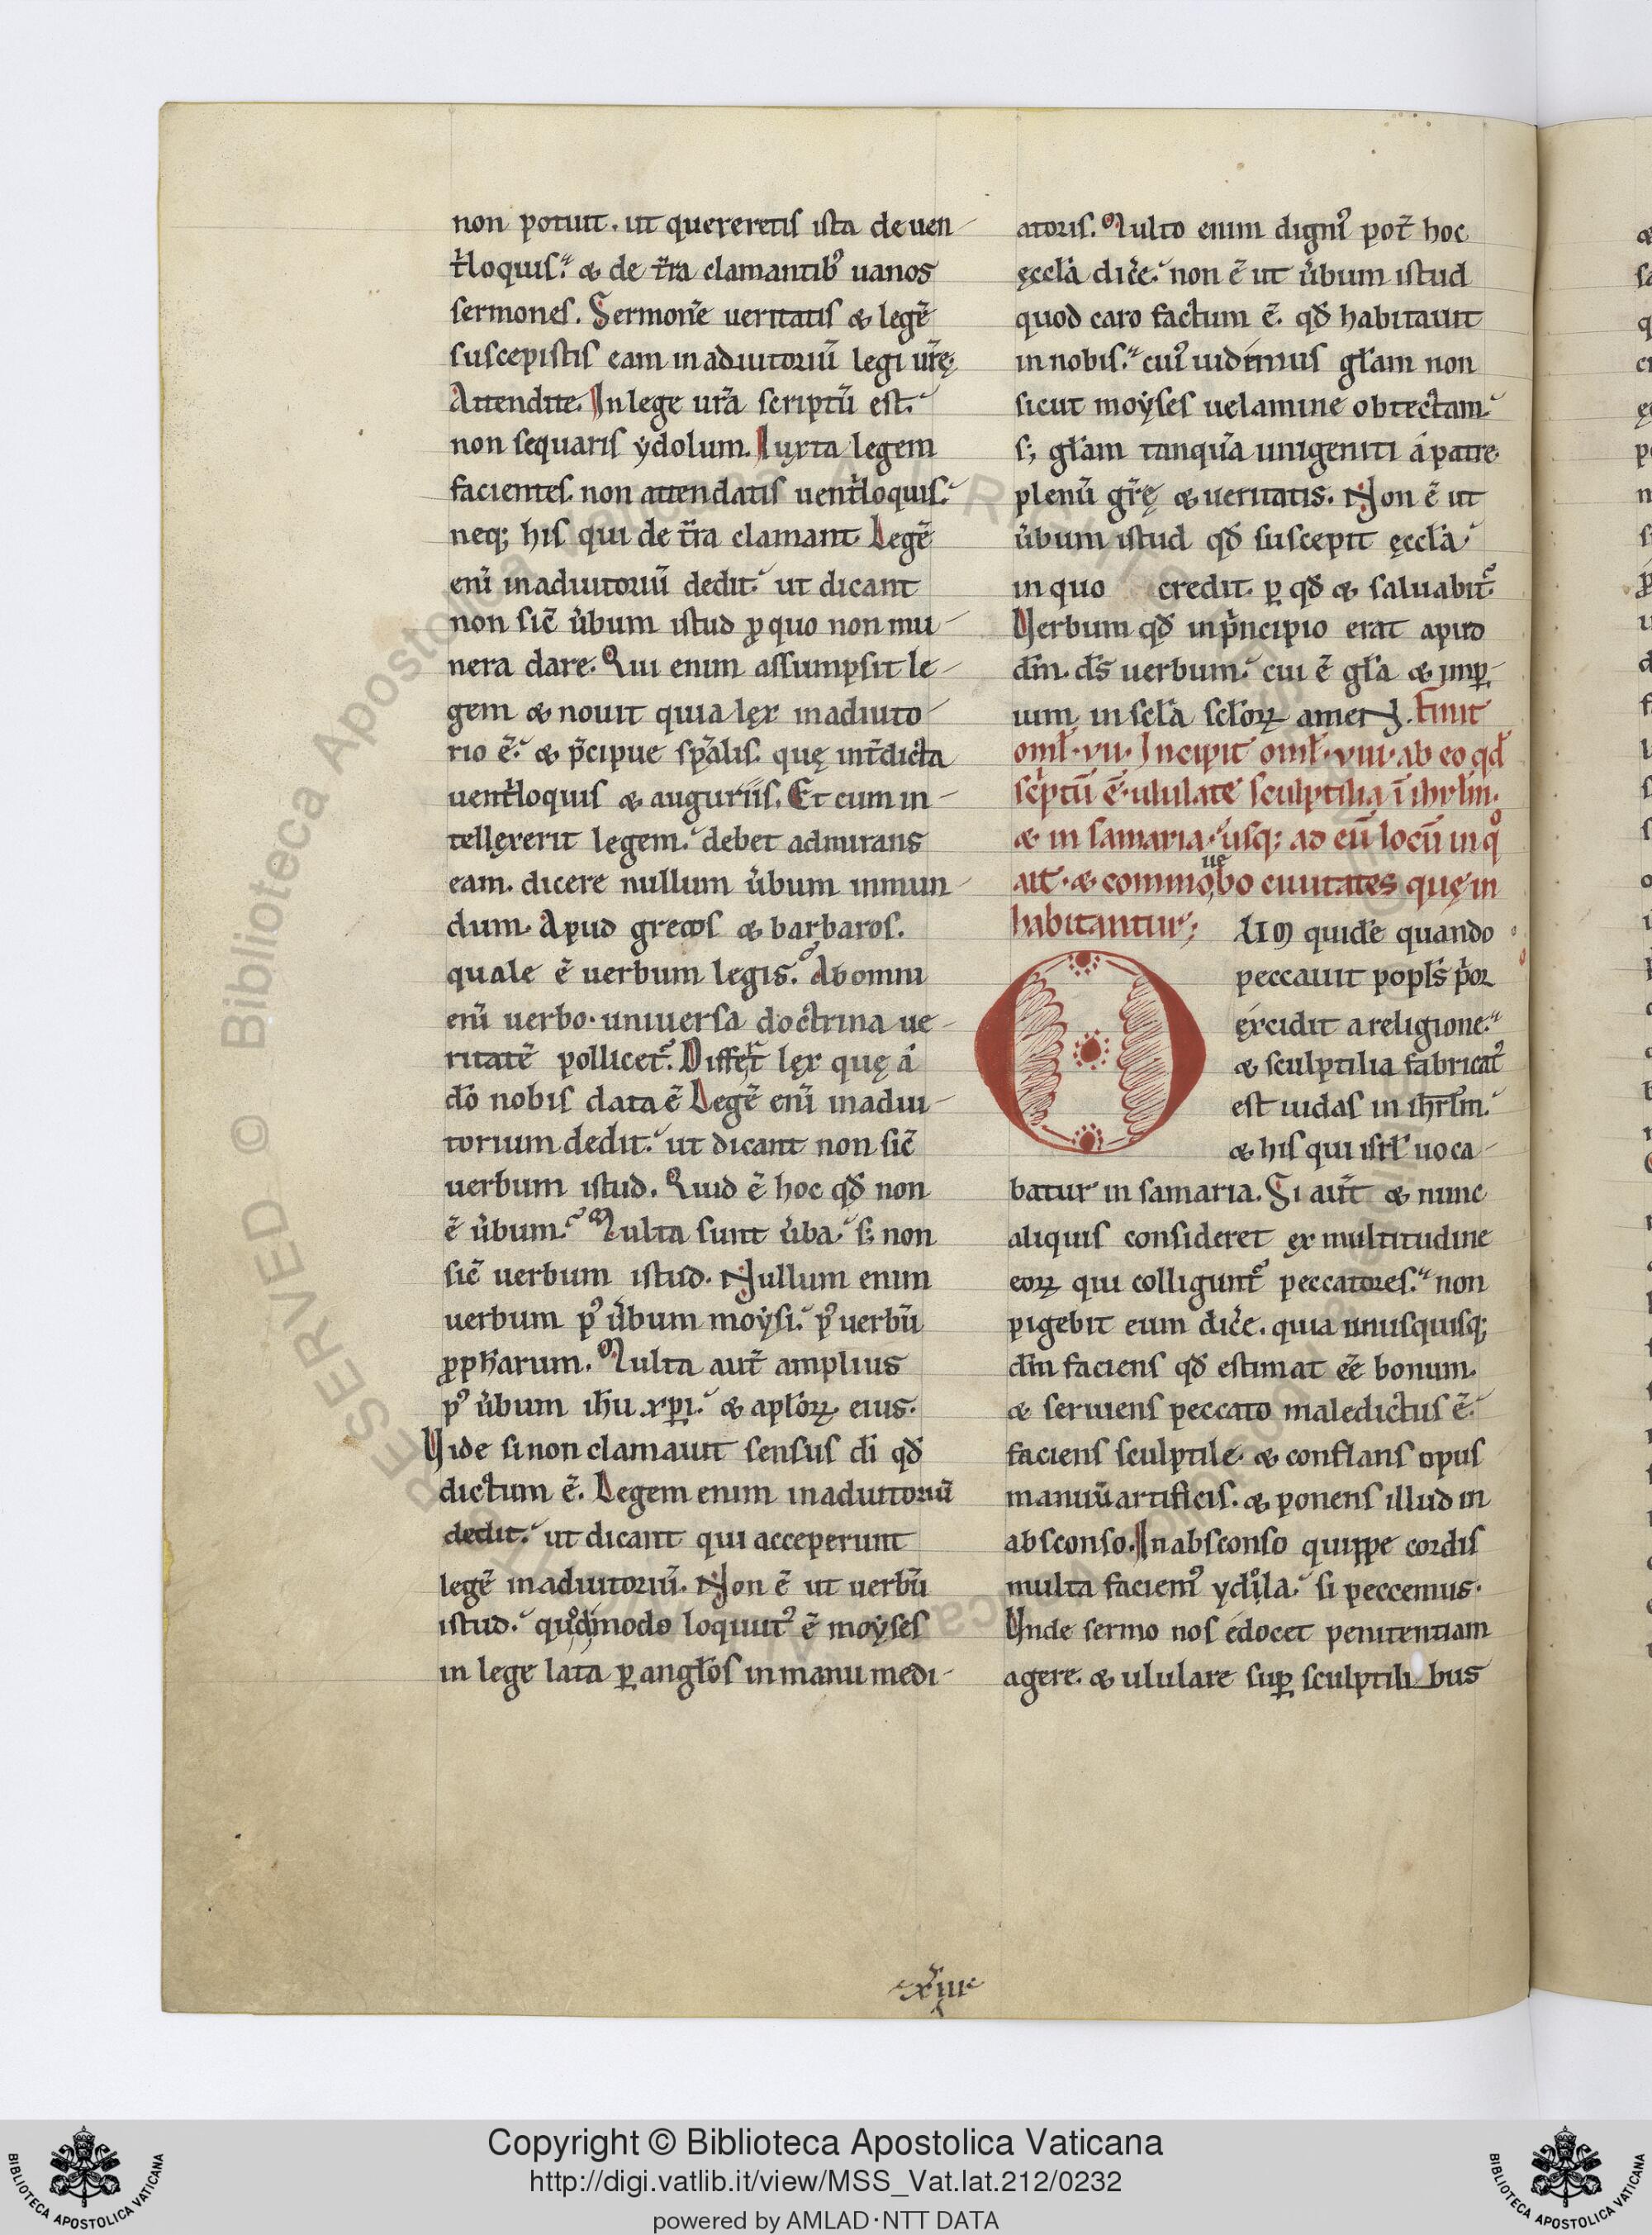 non potuit. ut quereretis ista de uen-
t̄loquis. & de t̄ra clamantib᾽ uanos
sermones. Sermonē ueritatis & legē
suscepistis eam in adiutoriū legi ur̄ę.
Attendite. In lege ur̄a scriptū est.
non sequaris ẏdolum. Iuxta legem
facientes. non attendatis uent̄loquis.
neq; his qui de t̄ra clamant. Legē
eni̅ in adiutoriū dedit. ut dicant
non sic̄ u̅bum istud ꝓ quo non mu-
nera dare. Qui enim assumpsit le-
gem & nouit quia lex in adiuto-
rio ē. & p̄cipue spālis. quę int̄dicta
uent̄loquis & auguriis. Et cum in-
tellexerit legem. debet admirans
eam. dicere nullum u̅bum inmun-
dum. Apud grecos & barbaros.
quale ē uerbum legis. Ab omni
eni̅ uerbo. uniuersa doctrina ue-
ritatē pollicet᾽. Differt lex quę á
dō nobis data ē. Legē eni̅ in adiu-
torium dedit. ut dicant non sic̄
uerbum istud. Quid ē hoc qđ non
ē u̅bum. Multa sunt u̅ba. s; non
sic̄ uerbum istud. Nullum enim
uerbum p᾽ u̅bum moẏsi. p᾽ uerbū
ꝓpħarum. Multa aut̄ amplius
p᾽ u̅bum ihu xpi. & aplōꝝ eius.
Vide si non clamauit sensus dī qđ
dictum ē. Legem enim in adiutoriū
dedit. ut dicant qui acceperunt
legē in adiutoriū. Non ē ut uerbū
istud. quo̊dmodo loquut᾽ ē moẏses
in lege lata ꝑ anglōs in manu medi-
atoris. Multo enim digni᾽ pot̄ hoc
ęcclā dic̄e. non ē ut u̅bum istud
quod caro factum ē. qđ habitauit
in nobis. cui᾽ uidimus glām non
sicut moẏses uelamine obtectam.
s; glām tanquā unigeniti á patre.
plenū gr̄ę & ueritatis. Non ē ut
u̅bum istud qđ suscepit ęcclā
in quo credit. ꝑ qđ & saluabit᾽.
Verbum qđ in p̄ncipio erat apud
dm̄. ds̄ uerbum. cui ē glā & imꝑ-
ium in sclā sclōꝝ amen. Finit
omł. vii. Incipit omł. viii. ab eo qđ
sc̄ptū ē. ululate sculptilia ī ihrlm̄.
& in samaria. usq; ad eū locū in qͦ
ait. & commouebo ciuitates quę in
habitantur;
OLIM quidē quando
peccauit popls̄ p̄or
éxcidit a religione.
& sculptilia fabricat᾽
est iudas in ihrl̄m.
& his qui isrł uoca-
batur in samaria. Si aut̄ & nunc
aliquis consideret ex multitudine
eoꝝ qui colligunt᾽ peccatores. non
pigebit eum dic̄e. quia unusquisq;
dm̄ faciens qđ estimat eē bonum.
& seruiens peccato maledictus ē.
faciens sculptile. & conflans opus
manuū artificis. & ponens illud in
absconso. In absconso quippe cordis
multa faciem᾽ ydola. si peccemus.
Vnde sermo nos édocet penitentiam
agere. & ululare suꝑ sculptilibus
Copyright © Biblioteca Apostolica Vaticana
http://digi.vatlib.it/view/MSS_Vat.lat.212/0232
powered by AMLAD·NTT DATA
BIBLIOTECA APOSTOLICA VATICANA
BIBLIOTECA APOSTOLICA VATICANA